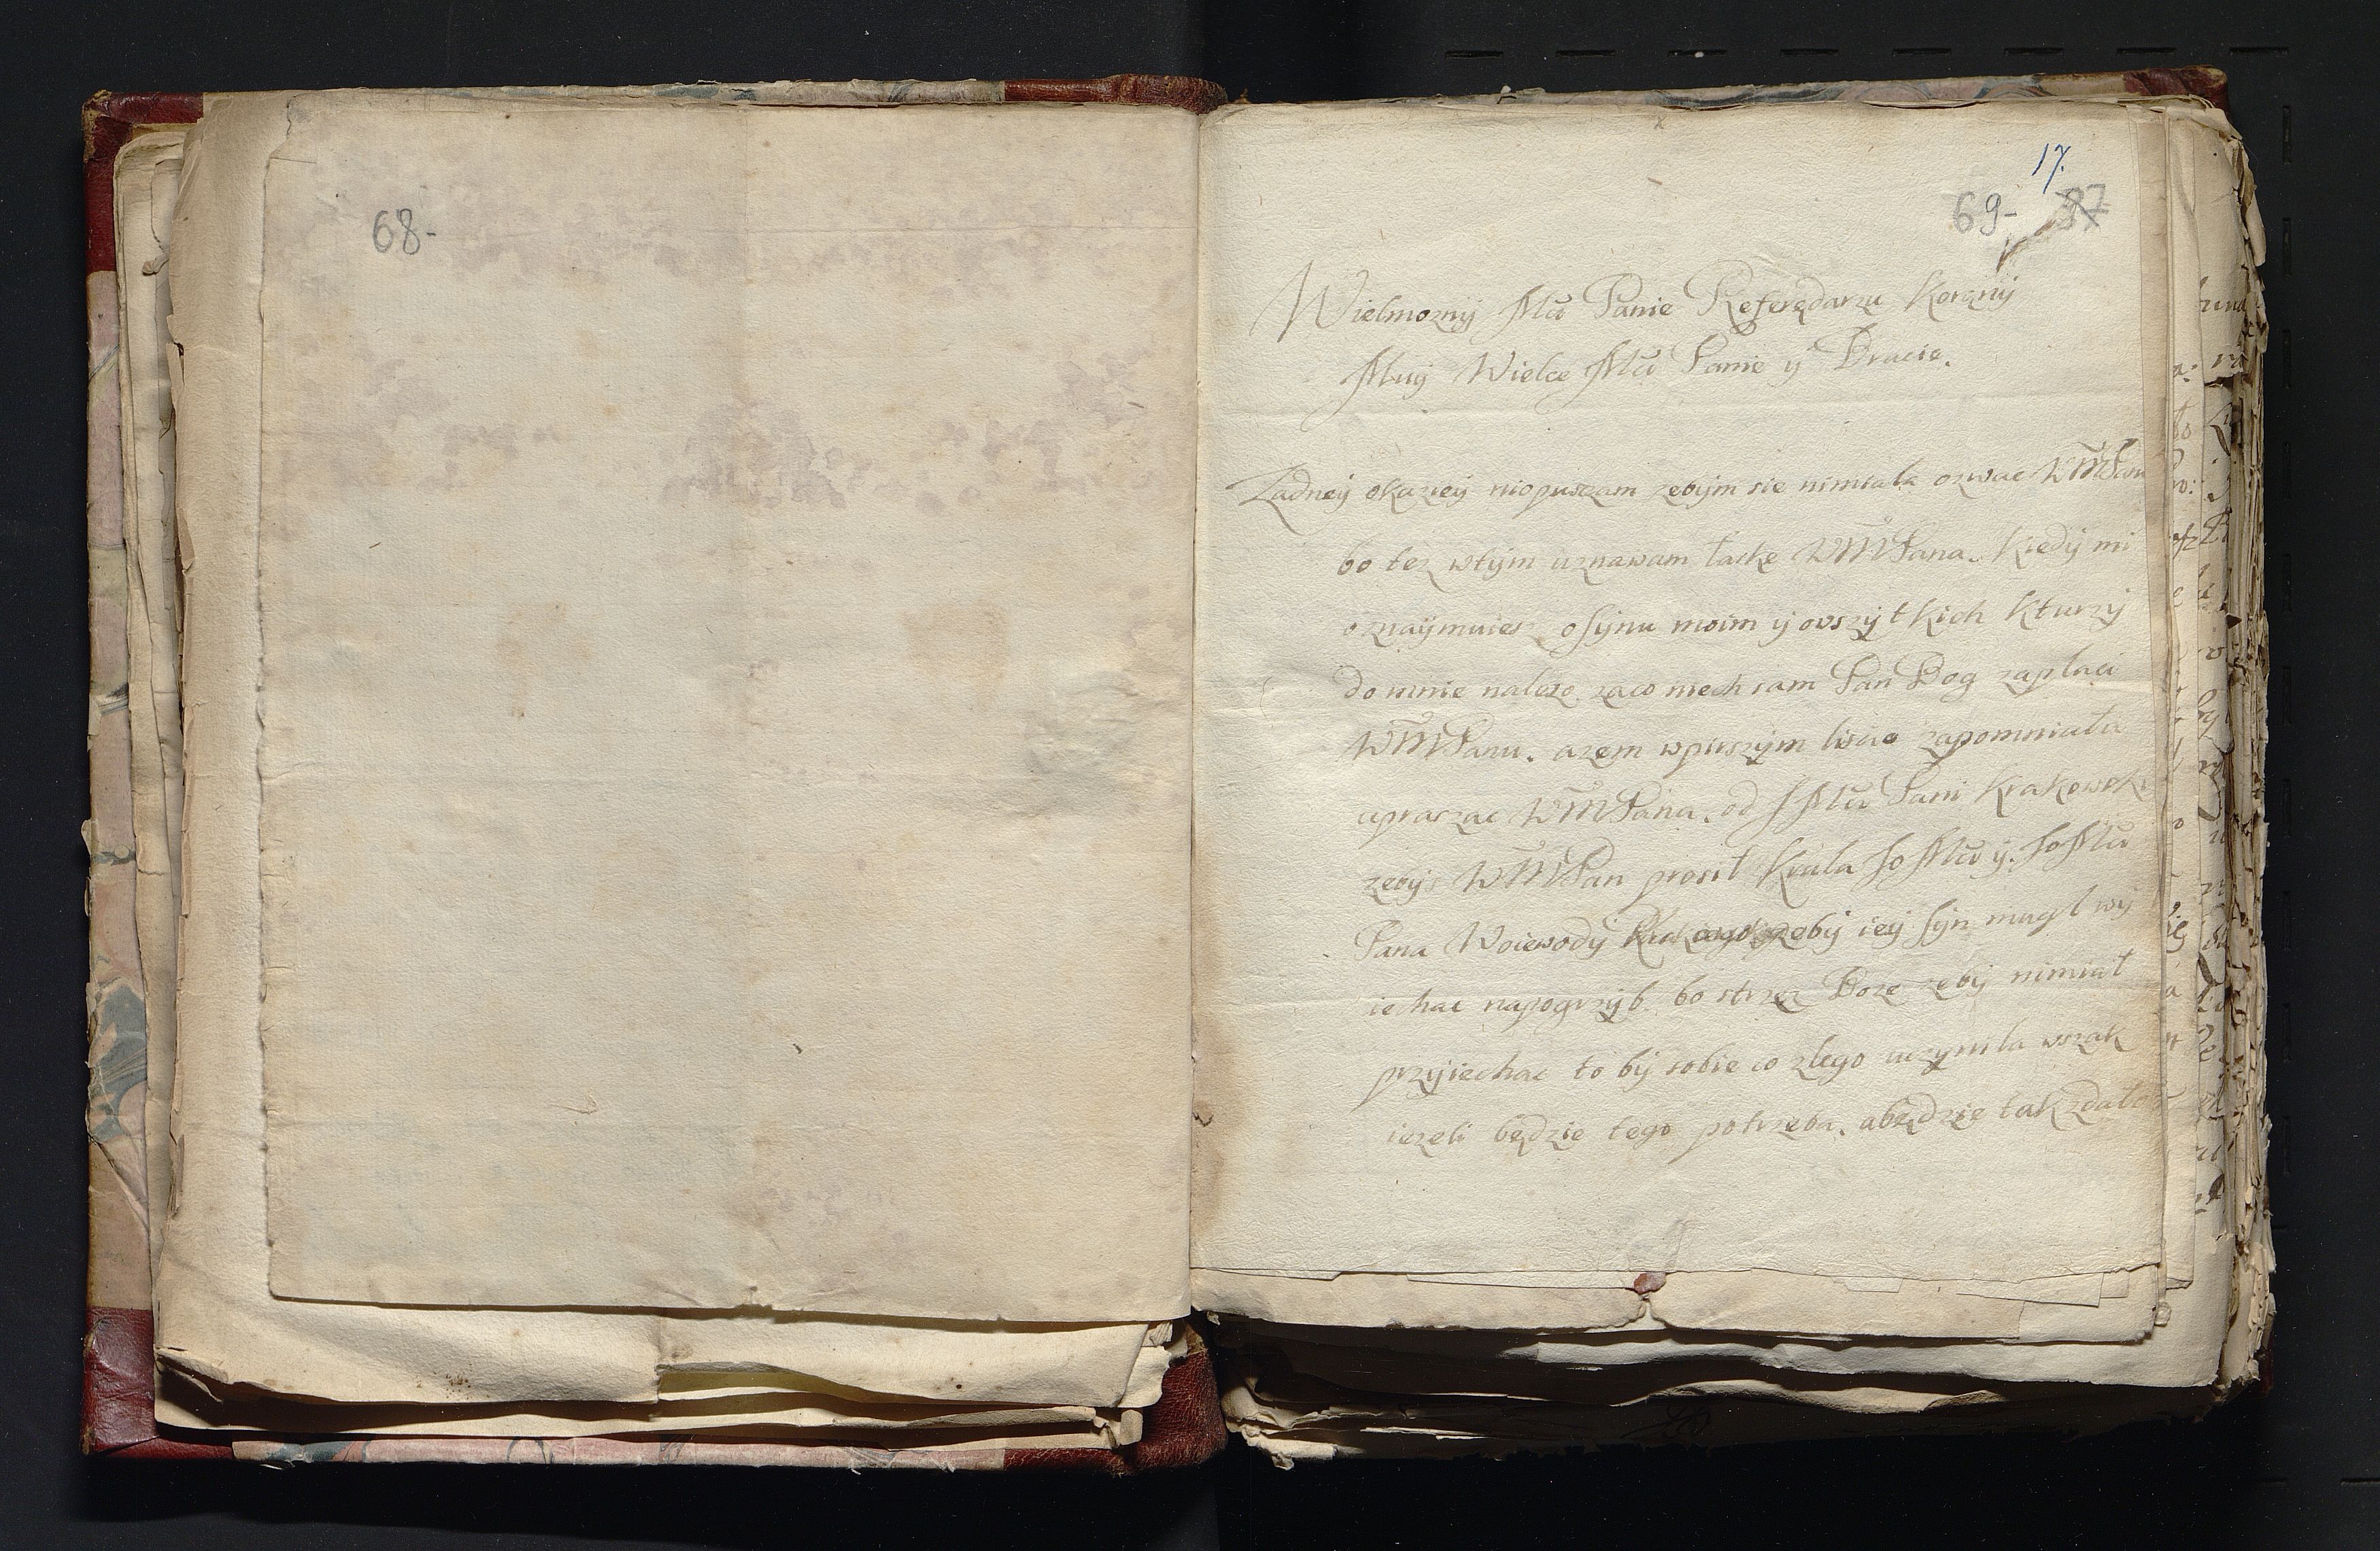 68-
17.
69- 37
Wielmozny Mći Panie Referędarzu Korony
Muy Wielce Mći Panie y Bracie.
Zadney okaziey niopuscam zebym sie nimiala ozwac WMPanu
bo tez wtym uznawam łaske WMPana. Kiedy mi
oznaymuiesz o synu moim y owszytkich kturzy
do mnie nalezo. zaco niech sam Pan Bog zapłaci
WMPanu. azem wpirszym liscie zapomniała
upraszac WMPana. od J Mći Pani Krakowski
zebys WMPan prosił Krula Jo Mći y. Jo Mći
Pana Woiewody zeby iey syn mugł wy
iechac napogrzyb. bo strzez Boze zeby nimiał
przyiechac to by sobie co zlego uczynila wszak
iezeli będzie tego potrzeba. abędzie tak zdało